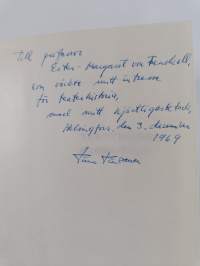 Till professor
Ester-Margaret von Frenckell,
som väckte mitt intresse
för teaterhistoria,
med mitt hjärtligaste tack,
Helsingfors, den 3. december
1969